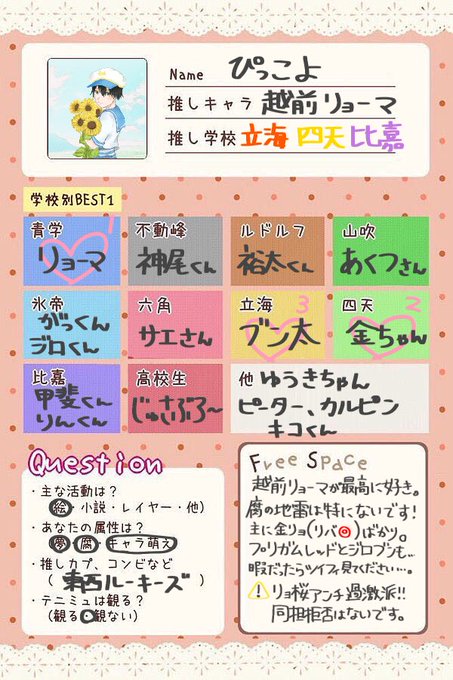 Name ぴっこよ
推しキャラ 越前リョーマ
推し学校 立海 四天 比嘉
学校別BEST1
青学 1
リョーマ
不動峰
神尾くん
ルドルフ
裕太くん
山吹
あくつさん
氷帝
がっくん
ジロくん
六角
サエさん
立海 3
ブン太
四天 2
金ちゃん
比嘉
甲斐くん
りんくん
高校生
じゅさぶろ〜
他 ゆうきちゃん
ピーター、カルピン
キコくん
Question
・主な活動は?
(絵・小説・レイヤー・他)
・あなたの属性は?
(夢・腐・キャラ萌え)
・推しカプ、コンビなど
(東西ルーキーズ)
・テニミュは観る?
(観る・観ない)
Free Space
越前リョーマが最高に好き。
腐の地雷は特にないです!
主に金リョ(リバ◎)ばかり。
プリガムレッドとジロブンも…
暇だったらツイフィ見てください…。
⚠リョ桜アンチ過激派!!
同担拒否はないです。